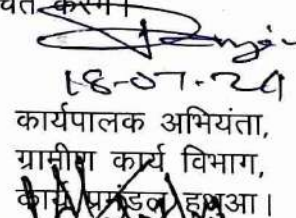 करेंगे।
18-07-24
कार्यपालक अभियंता,
ग्रामीण कार्य विभाग,
कार्य प्रमंडल हथुआ।